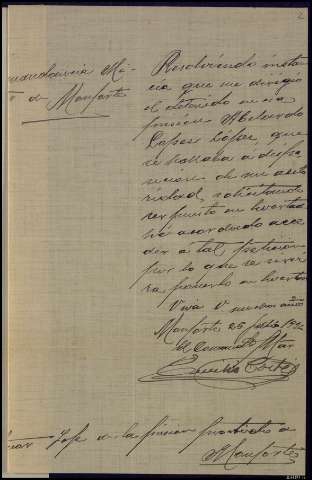 2
Comandancia Mi-
de Monforte
Resolviendo instan
cia que me dirigió
el detenido en esa
prisión Abelardo
López López que
se hallaba á dispo
sición de mi auto
ridad, solicitando
ser puesto en libertad
he acordado acce
der á tal petición
por lo que se servi
rá ponerlo en libertad
Viva V muchos años
Monforte 26 Julio
El Comandte Mtar
Cortés
Jefe de la prisión partido de
Monforte